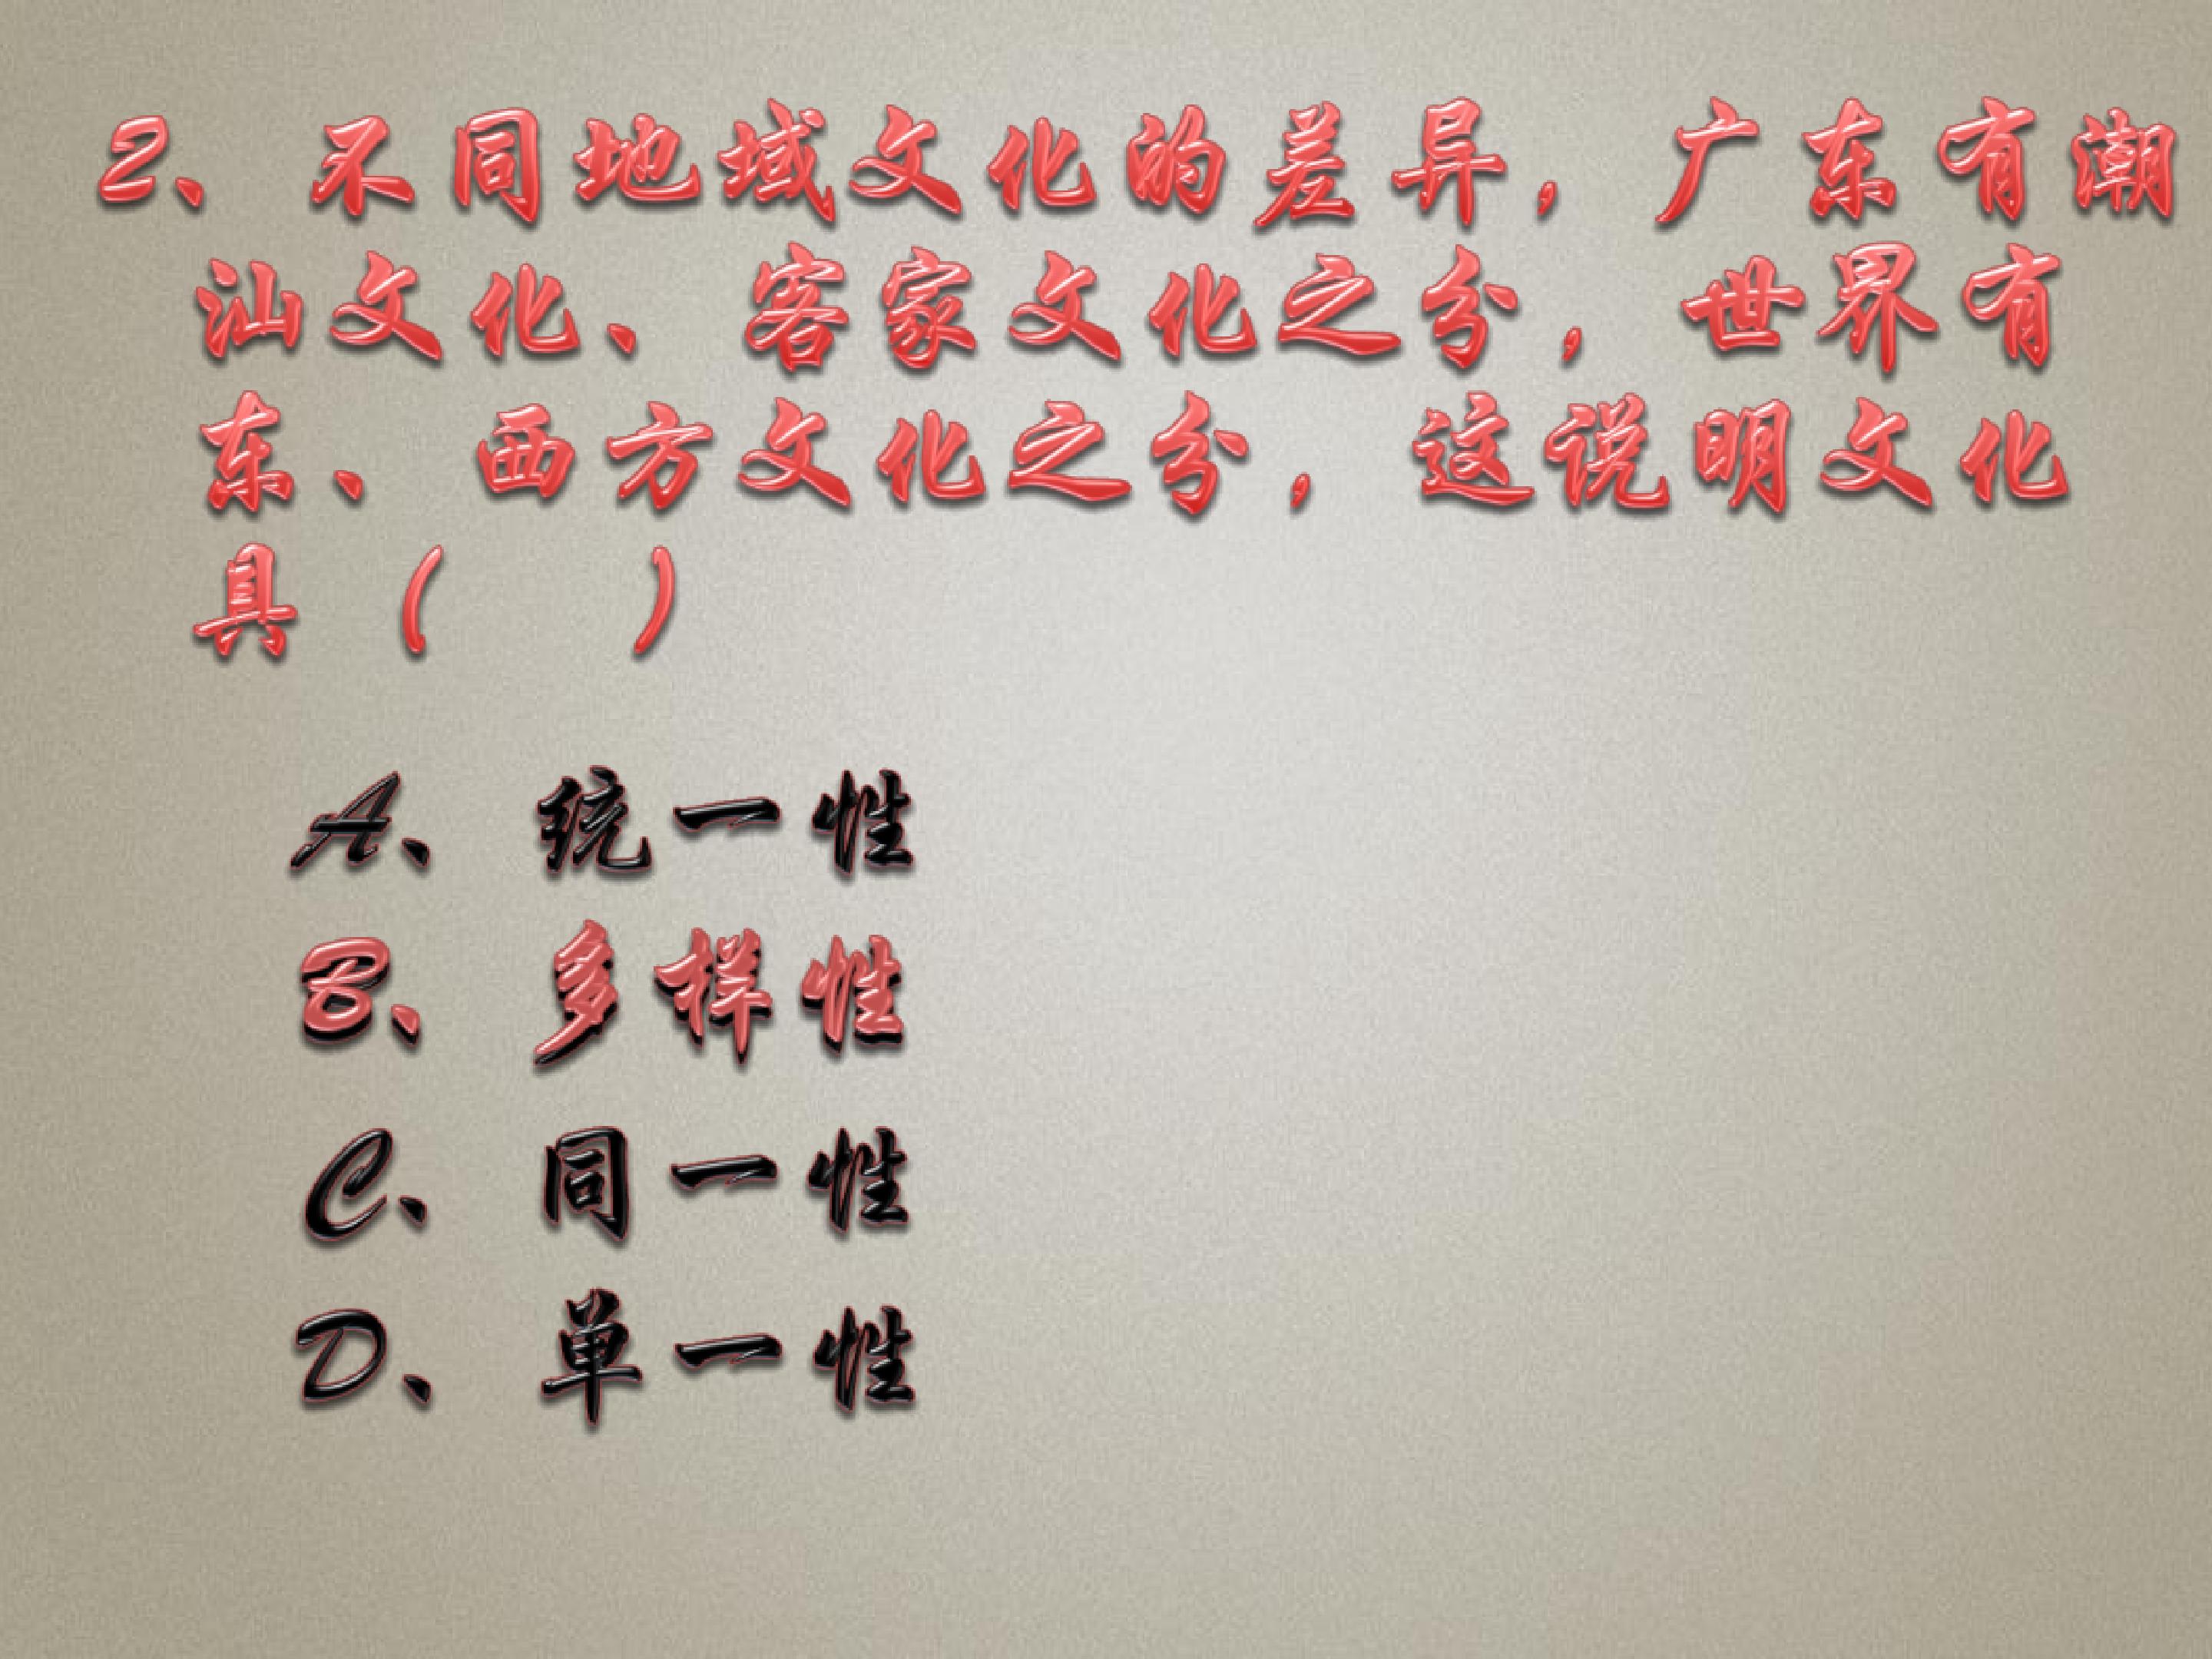 2、不同地域文化的差异，广东有潮
汕文化、客家文化之分，世界有
东、西方文化之分，这说明文化
具（　　）
A、统一性
B、多样性
C、同一性
D、单一性